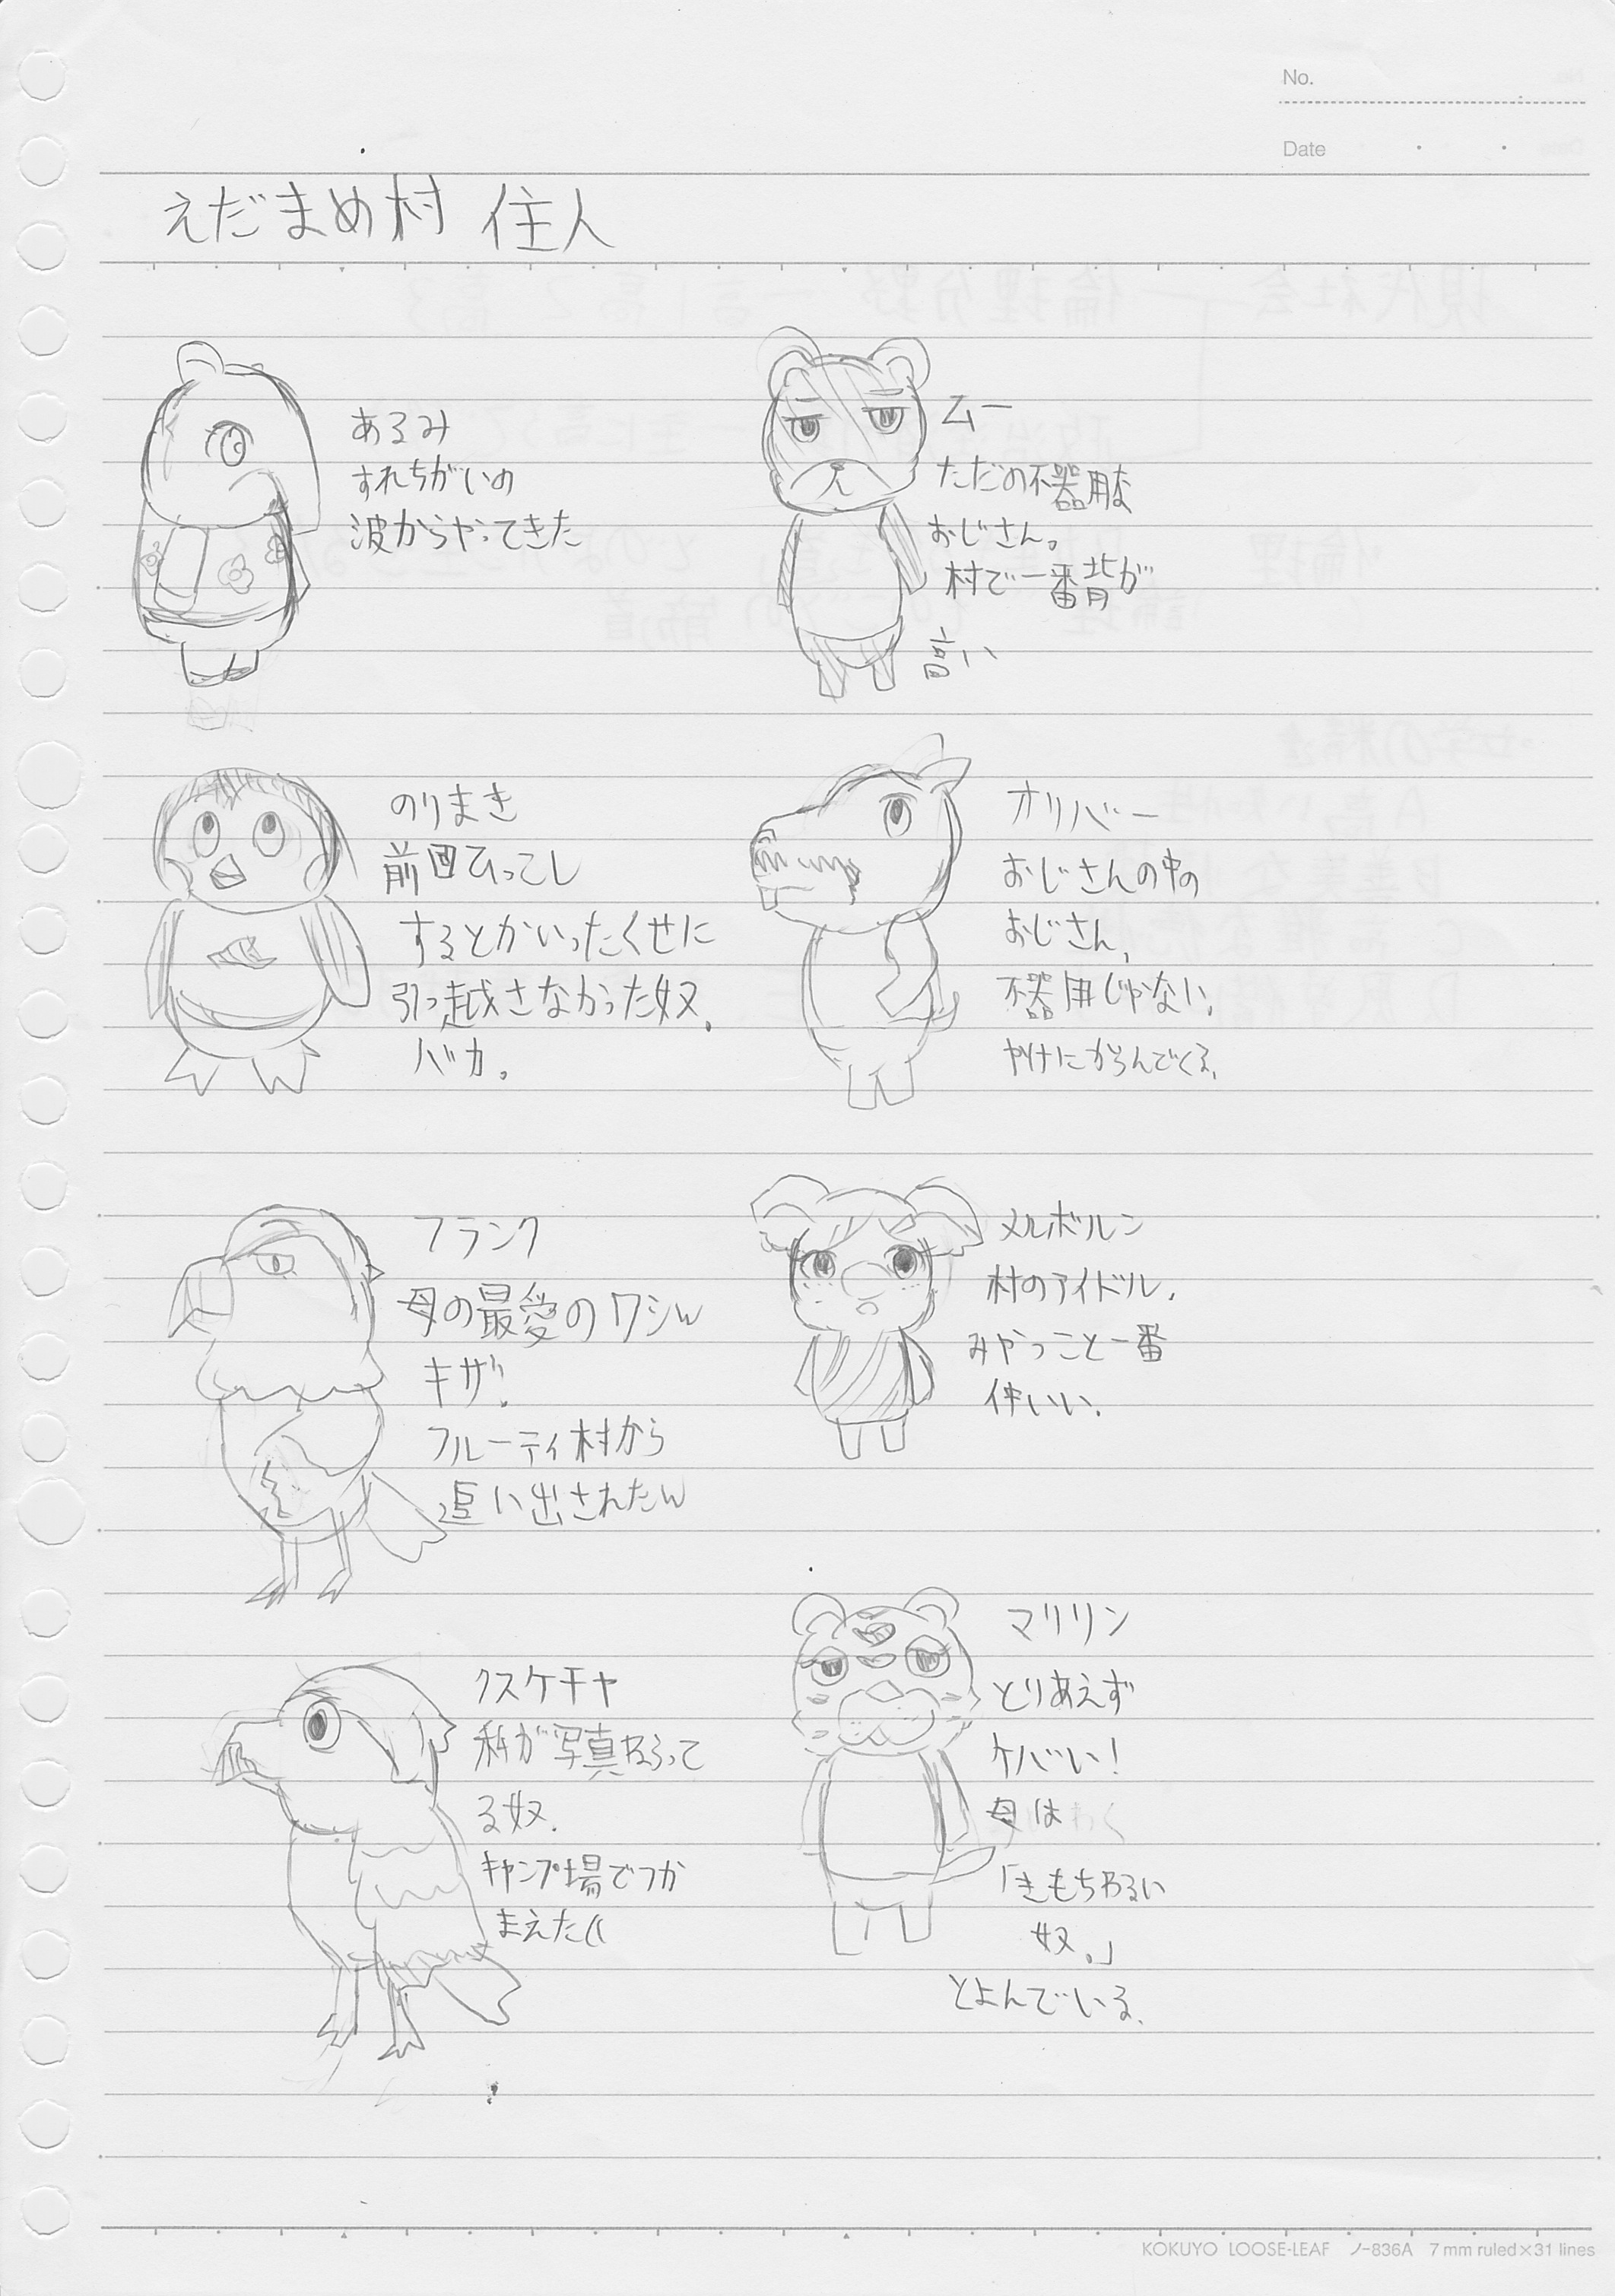 No.
Date
えだまめ村 住人
あるみ
すれちがいの
波からやってきた
ムー
ただの不器用な
おじさん。
村で一番背が
高い
のりまき
前回ひっこし
するとかいったくせに
引っ越さなかった奴.
バカ。
オリバー
おじさんの中の
おじさん,
不器用じゃない.
ヤケにからんでくる.
フランク
母の最愛のワシw
キザ.
フルーティ村から
追い出されたw
メルボルン
村のアイドル.
みやっこと一番
仲いい.
クスケチャ
私が写真わらって
る奴.
キャンプ場でつか
まえた((
マリリン
とりあえず
ケバい!
母は
「きもちわるい
奴。」
とよんでいる.
KOKUYO LOOSE-LEAF ノ-836A 7 mm ruled×31 lines